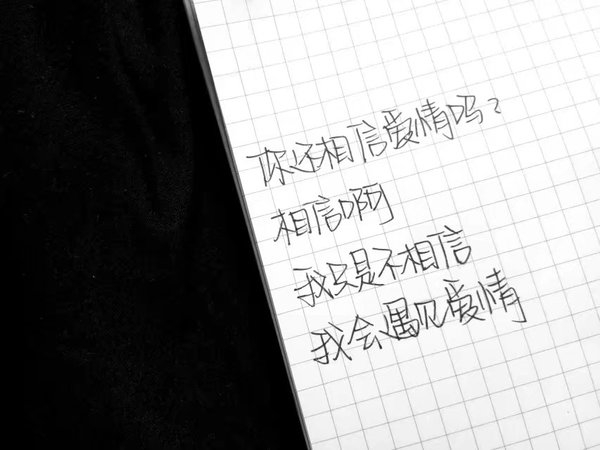 你还相信爱情吗？
相信啊
我只是不相信
我会遇见爱情